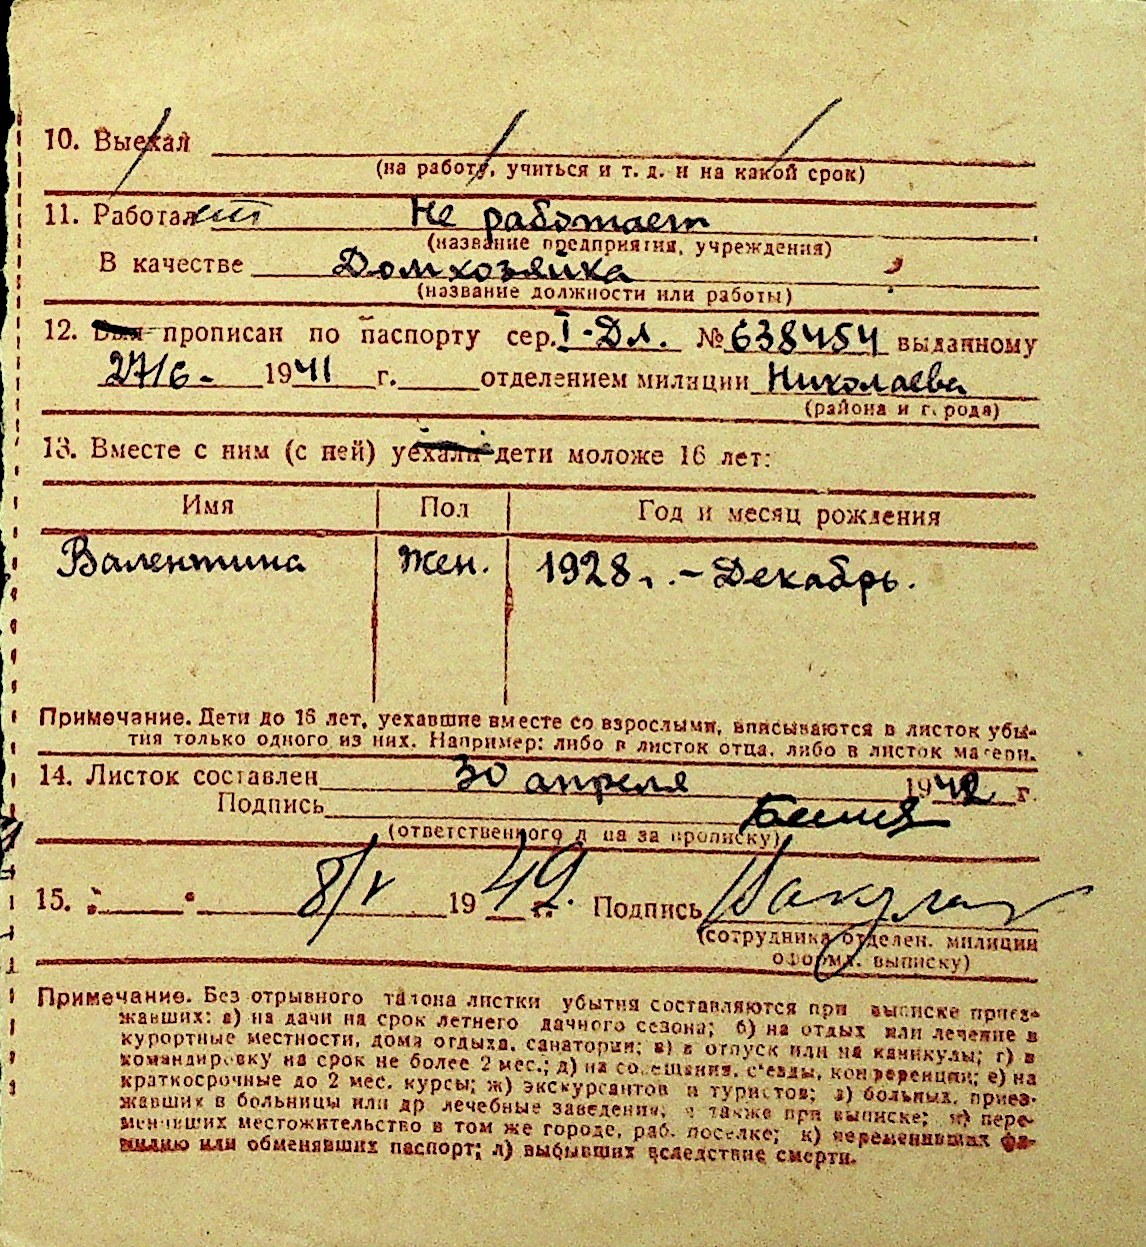 10. Выехал
(на работу, учиться и т. д. и на какой срок)
11. Работает Не работает
(название предприятия, учреждения)
В качестве Домхозяйка
(название должности или работы)
12. Был прописан по паспорту сер. I-Дл. № 638454 выданному
27/6 - 1941 г. отделением милиции Николаева
(района и города)
13. Вместе с ним (с ней) уехали дети моложе 16 лет:
Имя Пол Год и месяц рождения
Валентина Жен. 1928 г. - Декабрь.
Примечание. Дети до 16 лет, уехавшие вместе со взрослыми, вписываются в листок убы-
тия только одного из них. Например: либо в листок отца, либо в листок матери.
14. Листок составлен 30 апреля 1942 г.
Подпись
(ответственного лица за прописку)
15. 8/V 1942. Подпись
(сотрудника отделен. милиции
оформл. выписку)
Примечание. Без отрывного талона листки убытия составляются при выписке приез-
жавших: а) на дачи на срок летнего дачного сезона; б) на отдых или лечение в
курортные местности, дома отдыха, санатории; в) в отпуск или на каникулы; г) в
командировку на срок не более 2 мес.; д) на совещания, с'езды, конференции; е) на
краткосрочные до 2 мес. курсы; ж) экскурсантов и туристов; з) больных, приез-
жавших в больницы или др лечебные заведения, а также при выписке; и) пере-
менивших местожительство в том же городе, раб. поселке; к) переменивших фа-
милию или обменявших паспорт; л) выбывших вследствие смерти.